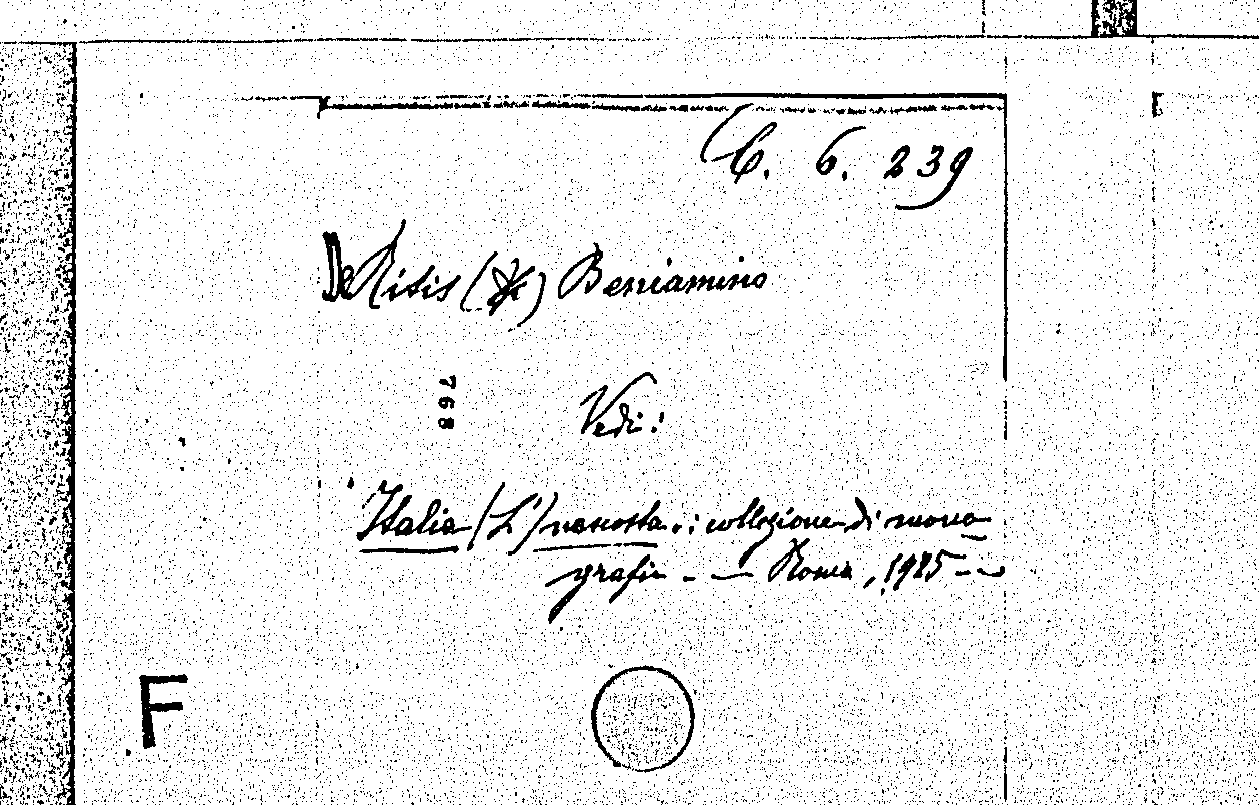 C. 6. 239
De Ritis (De) Beniamino
768
Vedi:
Italia (L') nascosta.: collezione di mono
grafie - — Roma, 1925 - -
F